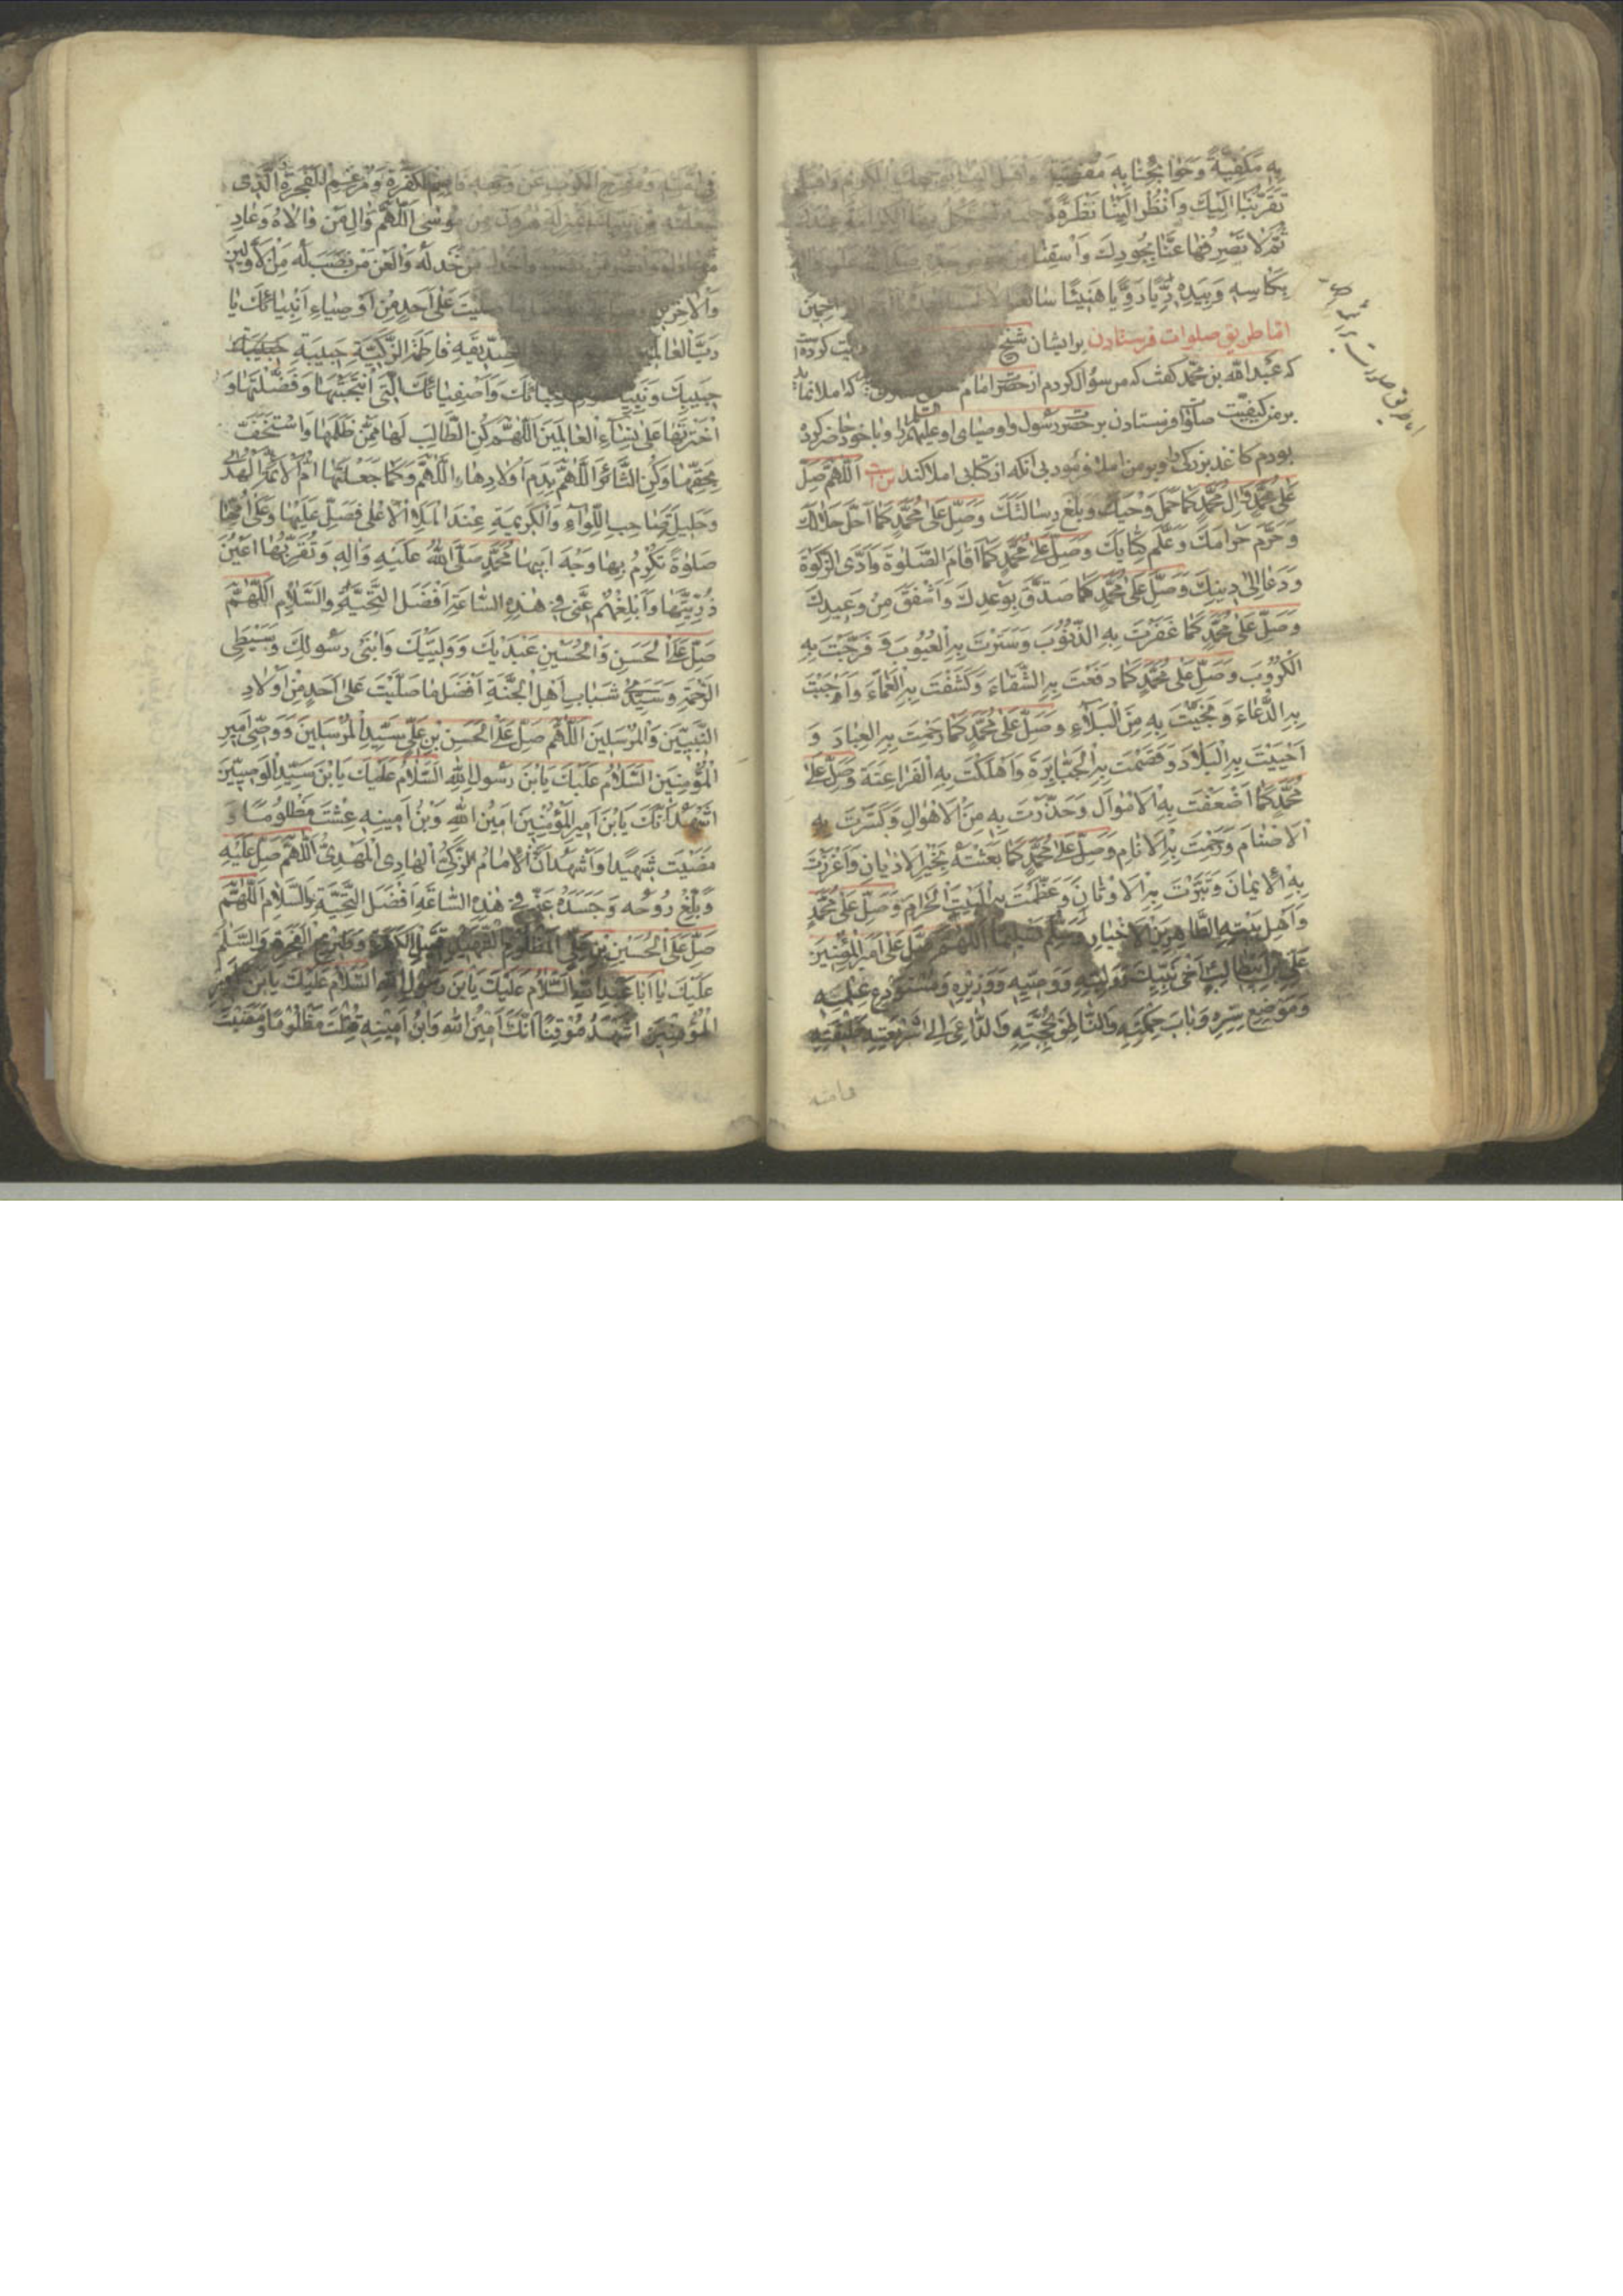 بِهِ مَكْفِيَّةً وَحَوَائِجَنَا بِهِ مَقْضِيَّةً وَاَقْبِلْ اِلَيْنَا بِوَجْهِكَ الْكَرِيمِ وَاقْبَلْ
تَقَرُّبَنَا اِلَيْكَ وَانْظُرْ اِلَيْنَا نَظْرَةً رَحِيمَةً نَسْتَكْمِلُ بِهَا الْكَرَامَةَ عِنْدَكَ
ثُمَّ لَا تَصْرِفْهَا عَنَّا بِجُودِكَ وَاسْقِنَا مِنْ حَوْضِ جَدِّهِ
بِكَأْسِهِ وَبِيَدِهِ رَيًّا رَوِيًّا هَنِيئًا سَائِغًا الرَّاحِمِينَ
اما طريق صلوات فرستادن بر ايشان شيخ كرده
كه عبدالله بن محمد كفت كه من سؤال كردم از حضرت امام كه املا نمايد
بر من كيفيت صلوات فرستادن بر حضرت رسول و اوصياى او عليهم السلم را و با خود حاضر كرده
بودم كاغذ بزركى را و بر من املا فرمود بى آنكه از كتابى املا كند اَللّٰهُمَّ صَلِّ
عَلٰى مُحَمَّدٍ وَاٰلِ مُحَمَّدٍ كَمَا حَمَلَ وَحْيَكَ وَبَلَّغَ رِسَالَتَكَ وَصَلِّ عَلٰى مُحَمَّدٍ كَمَا اَحَلَّ حَلَالَكَ
وَحَرَّمَ حَرَامَكَ وَعَلَّمَ كِتَابَكَ وَصَلِّ عَلٰى مُحَمَّدٍ كَمَا اَقَامَ الصَّلٰوةَ وَاَدَّى الزَّكٰوةَ
وَدَعَا اِلٰى دِينِكَ وَصَلِّ عَلٰى مُحَمَّدٍ كَمَا صَدَّقَ بِوَعْدِكَ وَاَشْفَقَ مِنْ وَعِيدِكَ
وَصَلِّ عَلٰى مُحَمَّدٍ كَمَا غَفَرْتَ بِهِ الذُّنُوبَ وَسَتَرْتَ بِهِ الْعُيُوبَ وَفَرَّجْتَ بِهِ
الْكُرُوبَ وَصَلِّ عَلٰى مُحَمَّدٍ كَمَا دَفَعْتَ بِهِ الشَّقَاءَ وَكَشَفْتَ بِهِ الْغَمَّاءَ وَاَجَبْتَ
بِهِ الدُّعَاءَ وَنَجَّيْتَ بِهِ مِنَ الْبَلَاءِ وَصَلِّ عَلٰى مُحَمَّدٍ كَمَا رَحِمْتَ بِهِ الْعِبَادَ وَ
اَحْيَيْتَ بِهِ الْبِلَادَ وَقَصَمْتَ بِهِ الْجَبَابِرَةَ وَاَهْلَكْتَ بِهِ الْفَرَاعِنَةَ وَصَلِّ عَلٰى
مُحَمَّدٍ كَمَا اَضْعَفْتَ بِهِ الْاَمْوَالَ وَحَذَّرْتَ بِهِ مِنَ الْاَهْوَالِ وَكَسَرْتَ بِهِ
الْاَصْنَامَ وَرَحِمْتَ بِهِ الْاَنَامَ وَصَلِّ عَلٰى مُحَمَّدٍ كَمَا بَعَثْتَهُ بِخَيْرِ الْاَدْيَانِ وَاَعْزَزْتَ
بِهِ الْاِيمَانَ وَتَبَّرْتَ بِهِ الْاَوْثَانَ وَعَظَّمْتَ بِهِ الْبَيْتَ الْحَرَامَ وَصَلِّ عَلٰى مُحَمَّدٍ
وَاَهْلِ بَيْتِهِ الطَّاهِرِينَ الْاَخْيَارِ وَسَلِّمْ تَسْلِيمًا اَللّٰهُمَّ صَلِّ عَلٰى اَمِيرِ الْمُؤْمِنِينَ
عَلِيِّ بْنِ اَبِيطَالِبٍ اَخِى نَبِيِّكَ وَوَلِيِّهِ وَوَصِيِّهِ وَوَزِيرِهِ وَمُسْتَوْدَعِ عِلْمِهِ
وَمَوْضِعِ سِرِّهِ وَبَابِ حِكْمَتِهِ وَالنَّاطِقِ بِحُجَّتِهِ وَالدَّاعِى اِلٰى شَرِيعَتِهِ وَخَلِيفَتِهِ
فى امته
فِى اُمَّتِهِ وَمُفَرِّجِ الْكَرْبِ عَنْ وَجْهِهِ قَاصِمِ الْكَفَرَةِ وَمُرْغِمِ الْفَجَرَةِ الَّذِى
جَعَلْتَهُ مِنْ نَبِيِّكَ بِمَنْزِلَةِ هٰرُونَ مِنْ مُوسٰى اَللّٰهُمَّ وَالِ مَنْ وَالَاهُ وَعَادِ
مَنْ عَادَاهُ وَانْصُرْ مَنْ نَصَرَهُ وَاخْذُلْ مَنْ خَذَلَهُ وَالْعَنْ مَنْ نَصَبَ لَهُ مِنَ الْاَوَّلِينَ
وَالْاٰخِرِينَ صَلَّيْتَ عَلٰى اَحَدٍ مِنْ اَوْصِيَاءِ اَنْبِيَائِكَ يَا
رَبَّ الْعَالَمِينَ الصِّدِّيقَةِ فَاطِمَةَ الزَّكِيَّةِ حَبِيبَةِ حَبِيبِكَ
حَبِيبِكَ وَنَبِيِّكَ وَاُمِّ اَحِبَّائِكَ وَاَصْفِيَائِكَ الَّتِى انْتَجَبْتَهَا وَفَضَّلْتَهَا وَ
اخْتَرْتَهَا عَلٰى نِسَاءِ الْعَالَمِينَ اَللّٰهُمَّ كُنِ الطَّالِبَ لَهَا مِمَّنْ ظَلَمَهَا وَاسْتَخَفَّ
بِحَقِّهَا وَكُنِ الثَّائِرَ اَللّٰهُمَّ بِدَمِ اَوْلَادِهَا اَللّٰهُمَّ وَكَمَا جَعَلْتَهَا اُمَّ الْاَئِمَّةِ الْهُدٰى
وَحَلِيلَةَ صَاحِبِ اللِّوَاءِ وَالْكَرِيمَةِ عِنْدَ الْمَلَاءِ الْاَعْلٰى فَصَلِّ عَلَيْهَا وَعَلٰى اُمِّهَا
صَلٰوةً تُكْرِمُ بِهَا وَجْهَ اَبِيهَا مُحَمَّدٍ صَلَّى اللّٰهُ عَلَيْهِ وَاٰلِهِ وَتُقِرُّ بِهَا اَعْيُنَ
ذُرِّيَّتِهَا وَاَبْلِغْهُمْ عَنِّى فِى هٰذِهِ السَّاعَةِ اَفْضَلَ التَّحِيَّةِ وَالسَّلَامِ اَللّٰهُمَّ
صَلِّ عَلَى الْحَسَنِ وَالْحُسَيْنِ عَبْدَيْكَ وَوَلِيَّيْكَ وَابْنَىْ رَسُولِكَ وَسِبْطَىِ
الرَّحْمَةِ وَسَيِّدَىْ شَبَابِ اَهْلِ الْجَنَّةِ اَفْضَلَ مَا صَلَّيْتَ عَلٰى اَحَدٍ مِنْ اَوْلَادِ
النَّبِيِّينَ وَالْمُرْسَلِينَ اَللّٰهُمَّ صَلِّ عَلَى الْحَسَنِ بْنِ عَلِىٍّ سَيِّدِ الْمُرْسَلِينَ وَوَصِىِّ اَمِيرِ
الْمُؤْمِنِينَ السَّلَامُ عَلَيْكَ يَابْنَ رَسُولِ اللّٰهِ السَّلَامُ عَلَيْكَ يَابْنَ سَيِّدِ الْوَصِيِّينَ
اَشْهَدُ اَنَّكَ يَابْنَ اَمِيرِ الْمُؤْمِنِينَ اَمِينُ اللّٰهِ وَبْنُ اَمِينِهِ عِشْتَ مَظْلُومًا وَ
مَضَيْتَ شَهِيدًا وَاَشْهَدُ اَنَّكَ الْاِمَامُ الزَّكِىُّ الْهَادِى الْمَهْدِىُّ اَللّٰهُمَّ صَلِّ عَلَيْهِ
وَبَلِّغْ رُوحَهُ وَجَسَدَهُ عَنِّى فِى هٰذِهِ السَّاعَةِ اَفْضَلَ التَّحِيَّةِ وَالسَّلَامِ اَللّٰهُمَّ
صَلِّ عَلَى الْحُسَيْنِ بْنِ عَلِىٍّ الْمَظْلُومِ الشَّهِيدِ قَتِيلِ الْكَفَرَةِ وَطَرِيحِ الْفَجَرَةِ وَالسَّلَمُ
عَلَيْكَ يَا اَبَا عَبْدِاللّٰهِ السَّلَامُ عَلَيْكَ يَابْنَ رَسُولِ اللّٰهِ السَّلَامُ عَلَيْكَ يَابْنَ اَمِيرِ
الْمُؤْمِنِينَ اَشْهَدُ مُوقِنًا اَنَّكَ اَمِينُ اللّٰهِ وَابْنُ اَمِينِهِ قُتِلْتَ مَظْلُومًا وَمَضَيْتَ